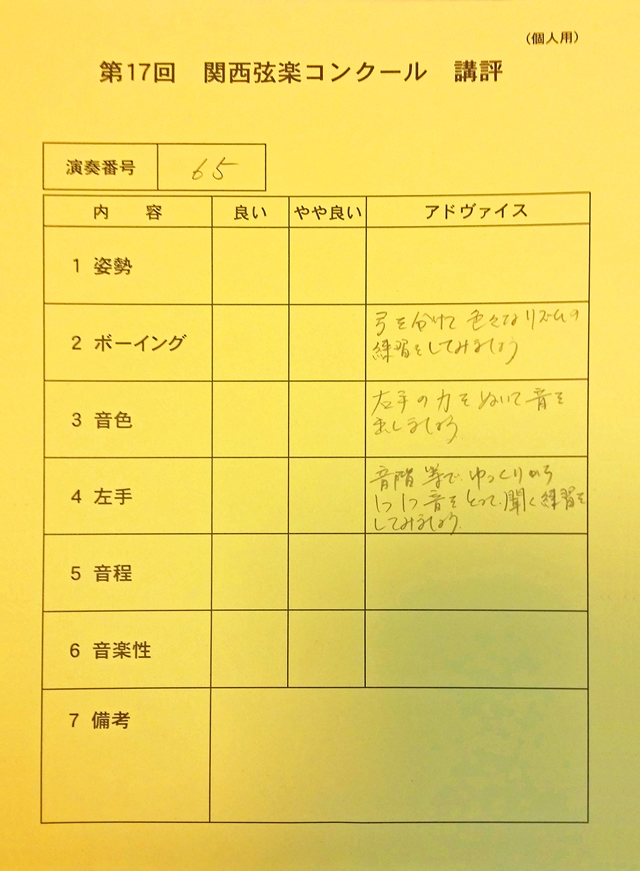 （個人用）
第17回　関西弦楽コンクール　講評
演奏番号　65
内　容　良い　やや良い　アドヴァイス
1 姿勢
2 ボーイング
弓を分けて色々なリズムの
練習をしてみましょう
3 音色
左手の力をぬいて音を
出しましょう
4 左手
音階等で、ゆっくりから
1つ1つ音をとって、聞く練習を
してみましょう。
5 音程
6 音楽性
7 備考